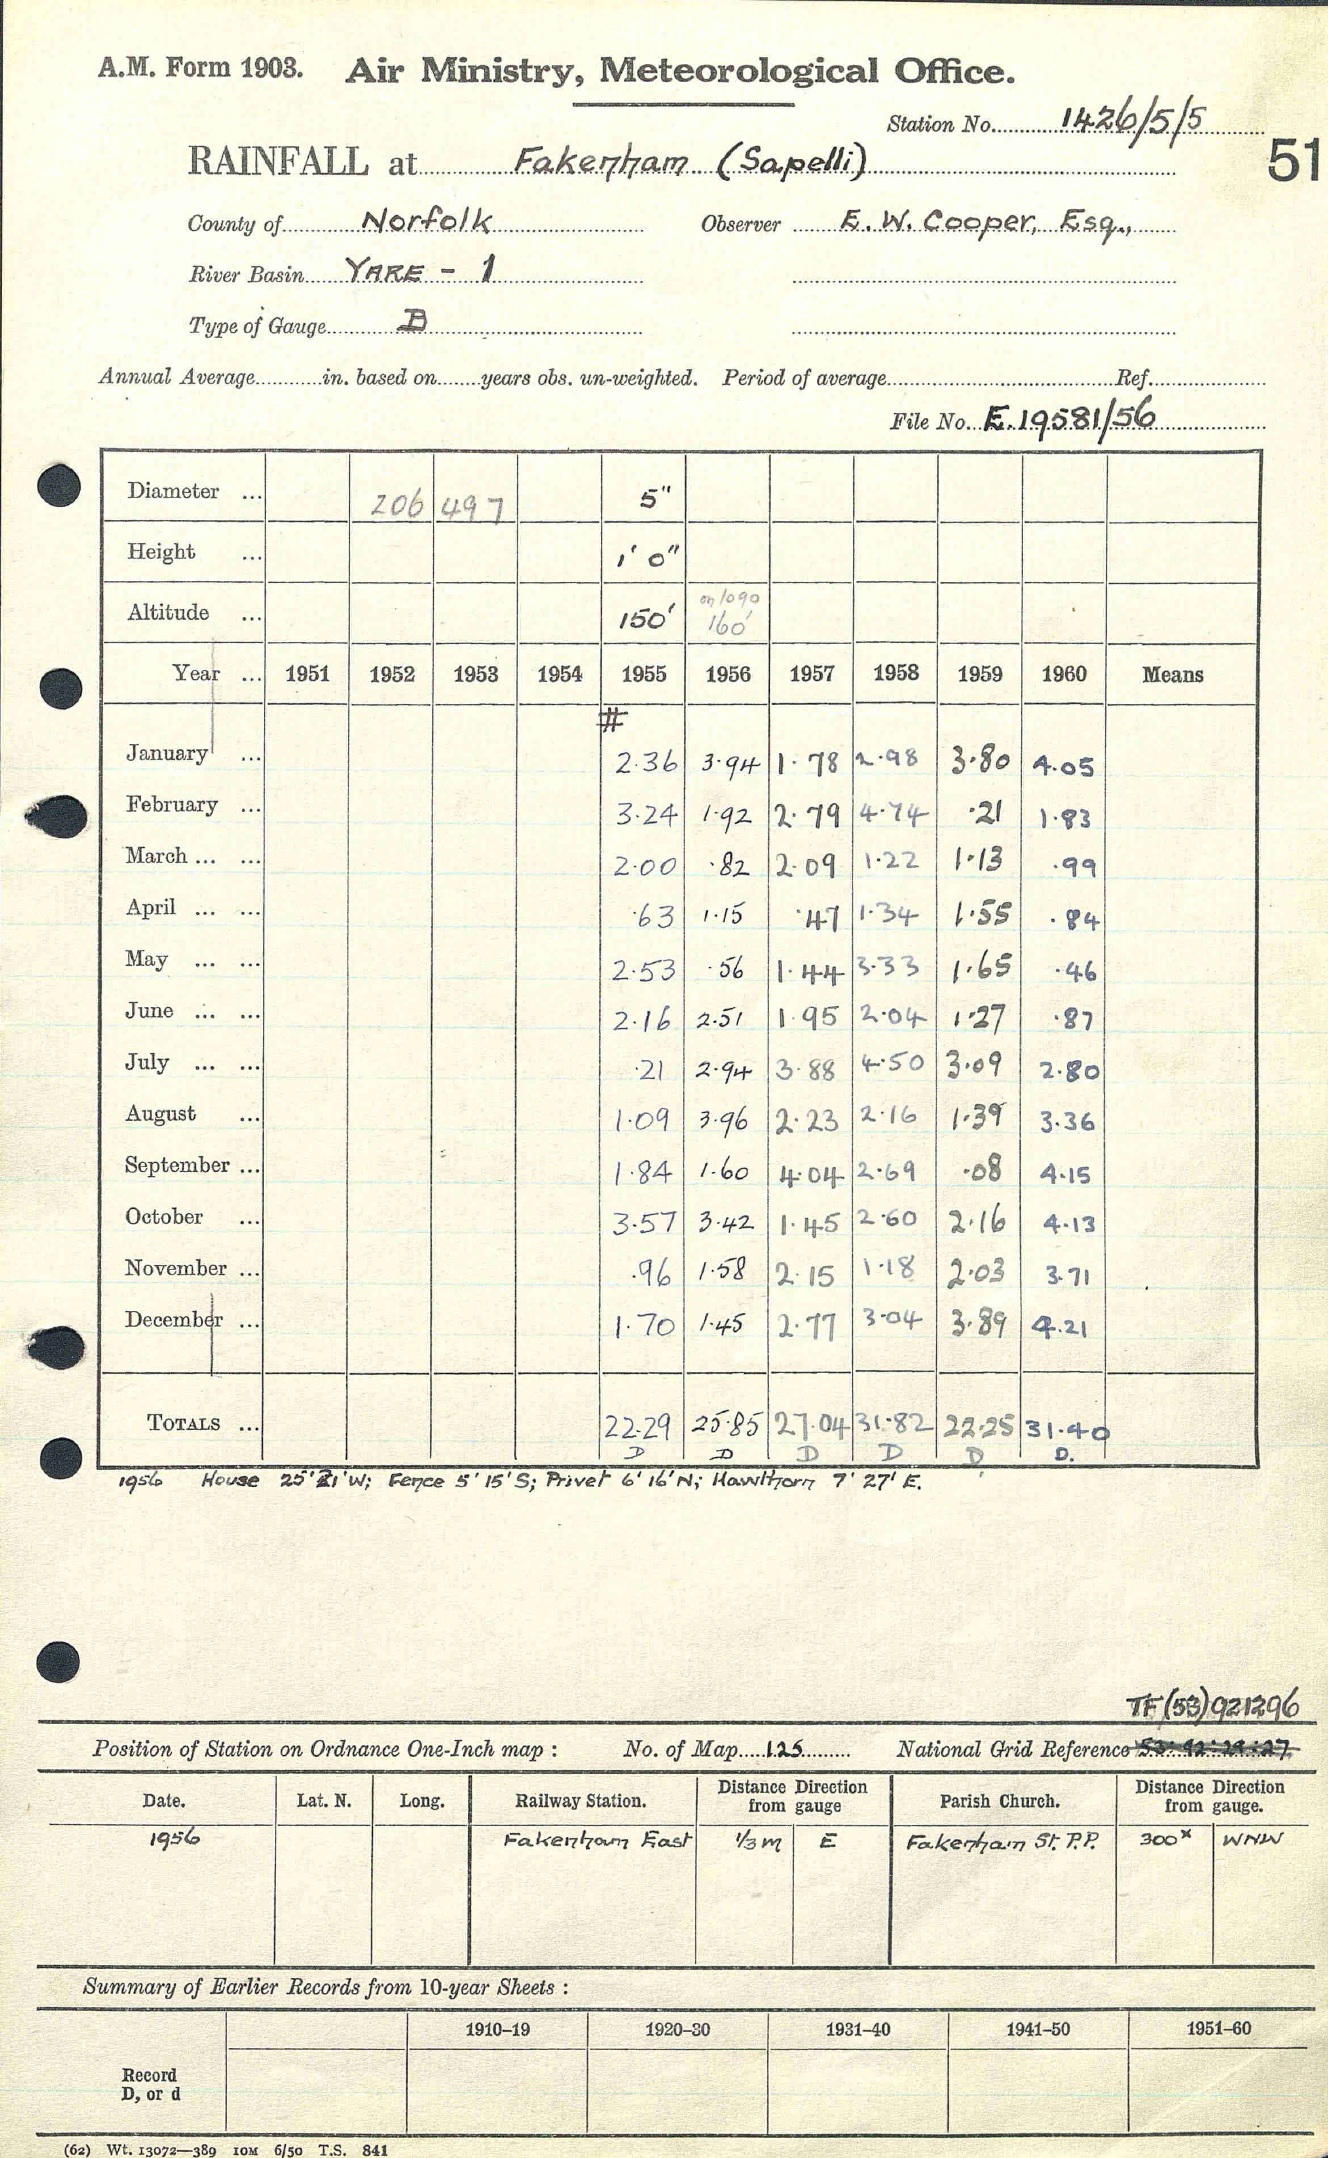 A.M. Form 1903. Air Ministry, Meteorological Office.
Station No. 1426/5/5
51
RAINFALL at Fakenham (Sapelli)
County of Norfolk Observer E. W. Cooper, Esq.,
River Basin YARE - 1
Type of Gauge B
Annual Average in. based on years obs. un-weighted. Period of average Ref.
File No. E.19581/56
Diameter ... 206 497 5"
Height ... 1' 0"
on 1090
Altitude ... 150' 160'
Year ... 1951 1952 1953 1954 1955 1956 1957 1958 1959 1960 Means
#
January ... 2.36 3.94 1.78 2.98 3.80 4.05
February ... 3.24 1.92 2.79 4.74 .21 1.83
March ... ... 2.00 .82 2.09 1.22 1.13 .99
April ... ... .63 1.15 .47 1.34 1.55 .84
May ... ... 2.53 .56 1.44 3.33 1.65 .46
June ... ... 2.16 2.51 1.95 2.04 1.27 .87
July ... ... .21 2.94 3.88 4.50 3.09 2.80
August ... 1.09 3.96 2.23 2.16 1.39 3.36
September ... 1.84 1.60 4.04 2.69 .08 4.15
October ... 3.57 3.42 1.45 2.60 2.16 4.13
November ... .96 1.58 2.15 1.18 2.03 3.71
December ... 1.70 1.45 2.77 3.04 3.89 4.21
TOTALS ... 22.29 25.85 27.04 31.82 22.25 31.40
D D D D D D.
1956 House 25' 21' W; Fence 5' 15' S; Privet 6' 16' N; Hawthorn 7' 27' E.
TF (53) 921296
Position of Station on Ordnance One-Inch map : No. of Map 125 National Grid Reference 53: 92: 29: 27
Date. Lat. N. Long. Railway Station. Distance from Direction gauge Parish Church. Distance from Direction gauge.
1956 Fakenham East 1/3 m E Fakenham St. P.P. 300x WNW
Summary of Earlier Records from 10-year Sheets :
1910–19 1920–30 1931–40 1941–50 1951–60
Record
D, or d
(62) Wt. 13072—389 10M 6/50 T.S. 841